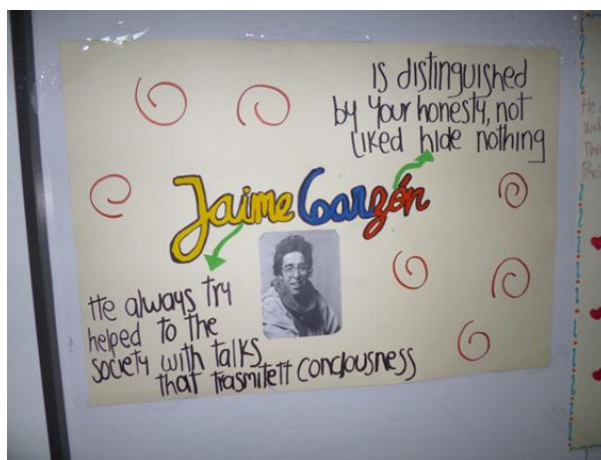 is distinguished
by your honesty, not
liked hide nothing
Jaime Garzón
He always try
helped to the
society with talks
that trasmitett conciousness
He